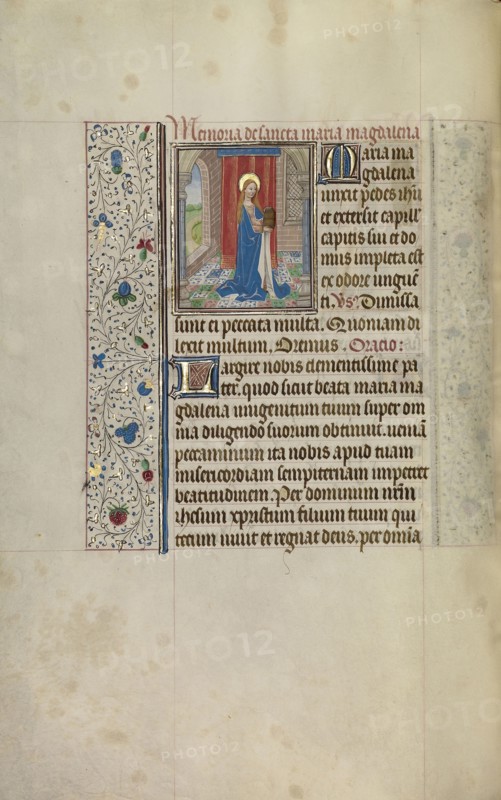 Memoria de sancta maria magdalena
Maria ma
gdalena
unxit pedes ihu
et extersit capill
capitis sui et do
mus impleta est
ex odore unguē
ti. Vs. Dimissa
sunt ei peccata multa. Quoniam di
lexit multum. Oremus. Oracio:
Largire nobis clementissime pa
ter. quod sicut beata maria ma
gdalena unigenitum tuum super om
nia diligendo suorum obtinuit. ueniā
peccaminum ita nobis apud tuam
misericordiam sempiternam impetret
beatitudinem. Per dominum nr̄m
ihesum xpristum filium tuum qui
tecum uiuit et regnat deus. per omīa
PHOTO12
PHOTO12
PHOTO12
PHOTO12
PHOTO12